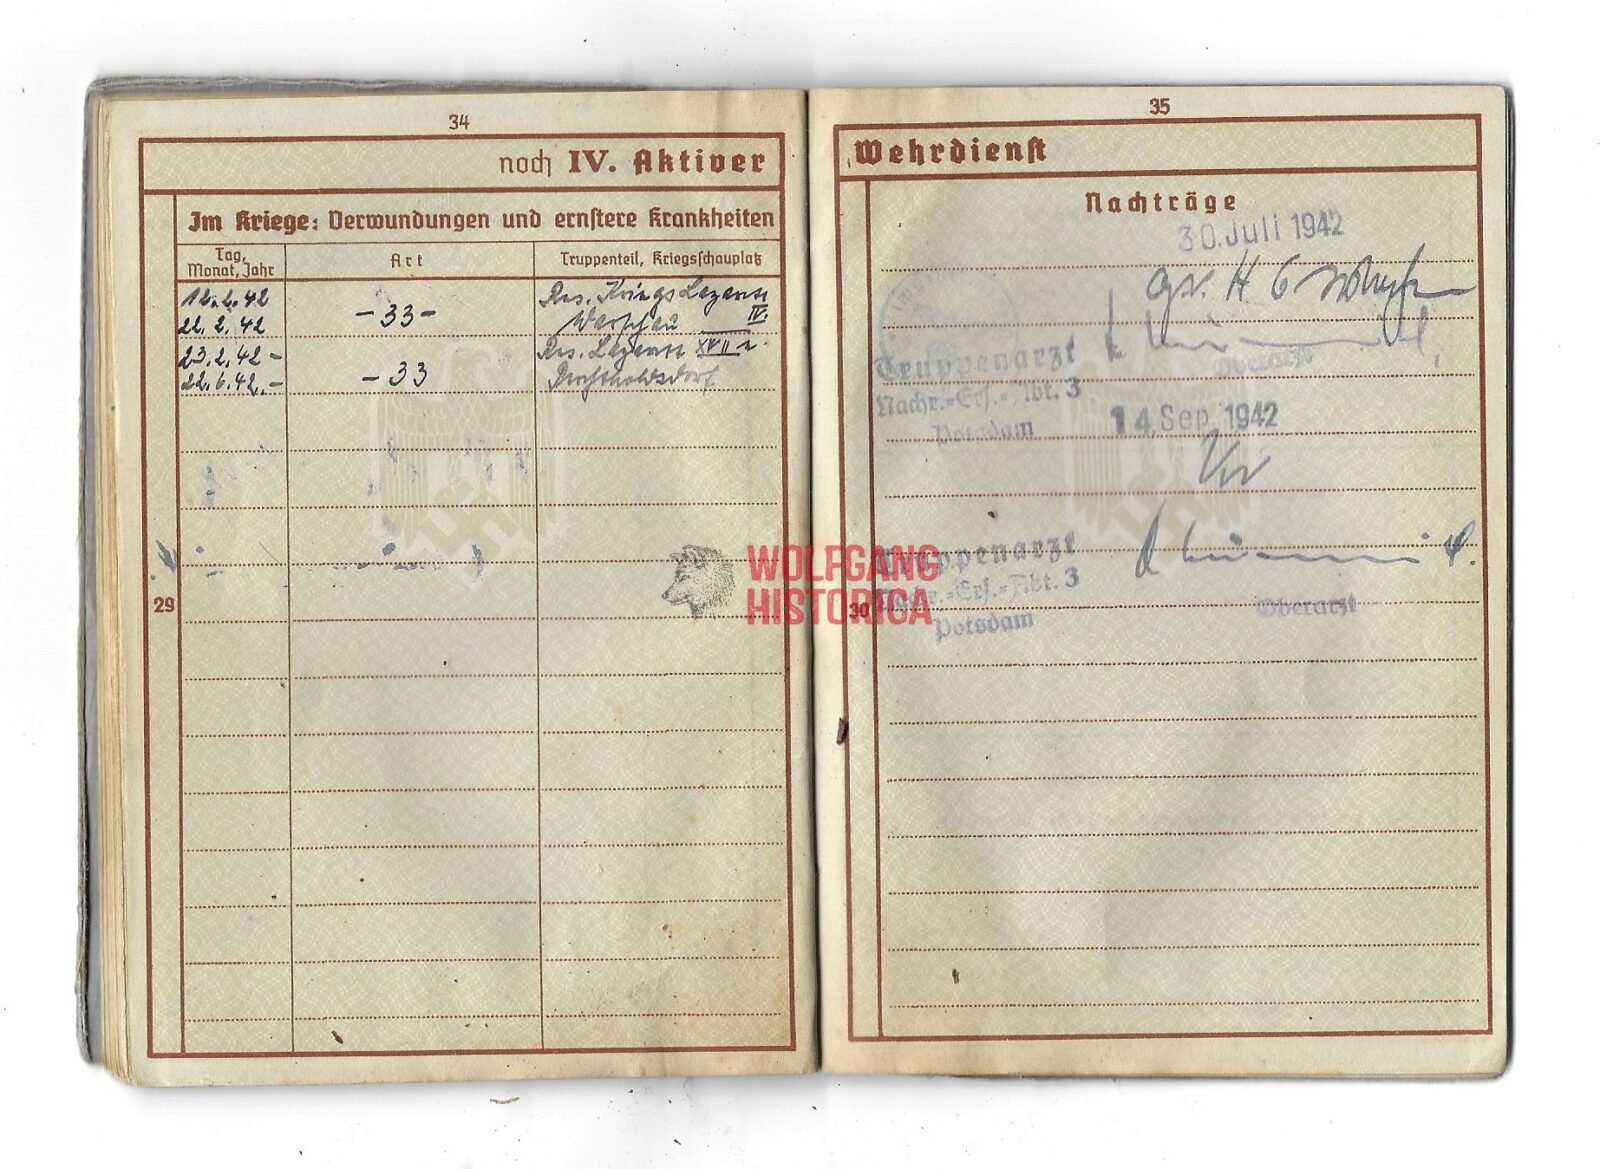 34
noch IV. Aktiver
Im Kriege: Verwundungen und ernstere Krankheiten
Tag, Monat, Jahr
Art
Truppenteil, Kriegsschauplatz
12.2.42
22.2.42
-33-
Res. Kriegs Lazarett
Warschau IV.
23.2.42-
22.6.42.-
-33
Res. Lazarett XVII a
29
35
Wehrdienst
Nachträge
30. Juli 1942
Truppenarzt
Oberarzt
Nachr.-Ers.-Abt. 3
Potsdam
14. Sep. 1942
Truppenarzt
Nachr.-Ers.-Abt. 3
Potsdam
Oberarzt
30
WOLFGANG
HISTORICA